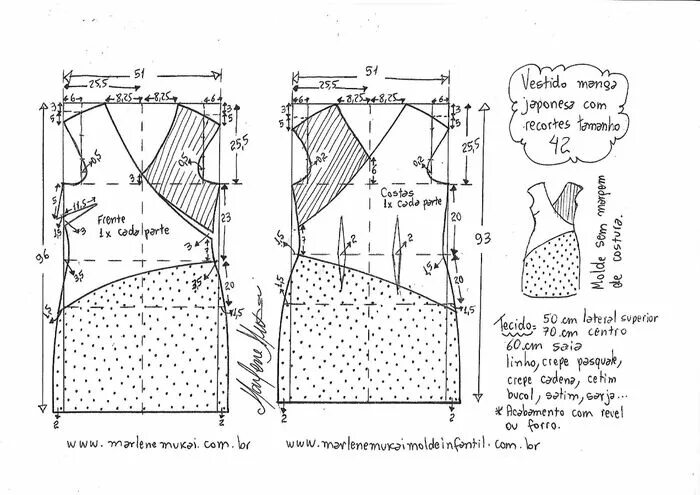 51
25,5
6
8,25
8,25
6
3
5
3
5
0,5
0,5
25,5
3
5
11,5
1,5
3
Frente
1x cada parte
3
7
23
96
3,5
3,5
20
1,5
1,5
2
2
www.marlenemukai.com.br
51
25,5
8,25
8,25
6
6
3
5
3
5
0,2
0,2
6
25,5
Costas
1x cada parte
7
2
2
20
93
1,5
1,5
20
1,5
1,5
2
2
Marlene Mukai
www.marlenemukaimoldeinfantil.com.br
Vestido manga
japonesa com
recortes tamanho
42
Molde sem margem
de costura.
Tecido: 50 cm lateral superior
70 cm centro
60 cm saia
linho, crepe pasquale,
crepe cadena, cetim
bucol, satim, sarja...
* Acabamento com revel
ou forro.